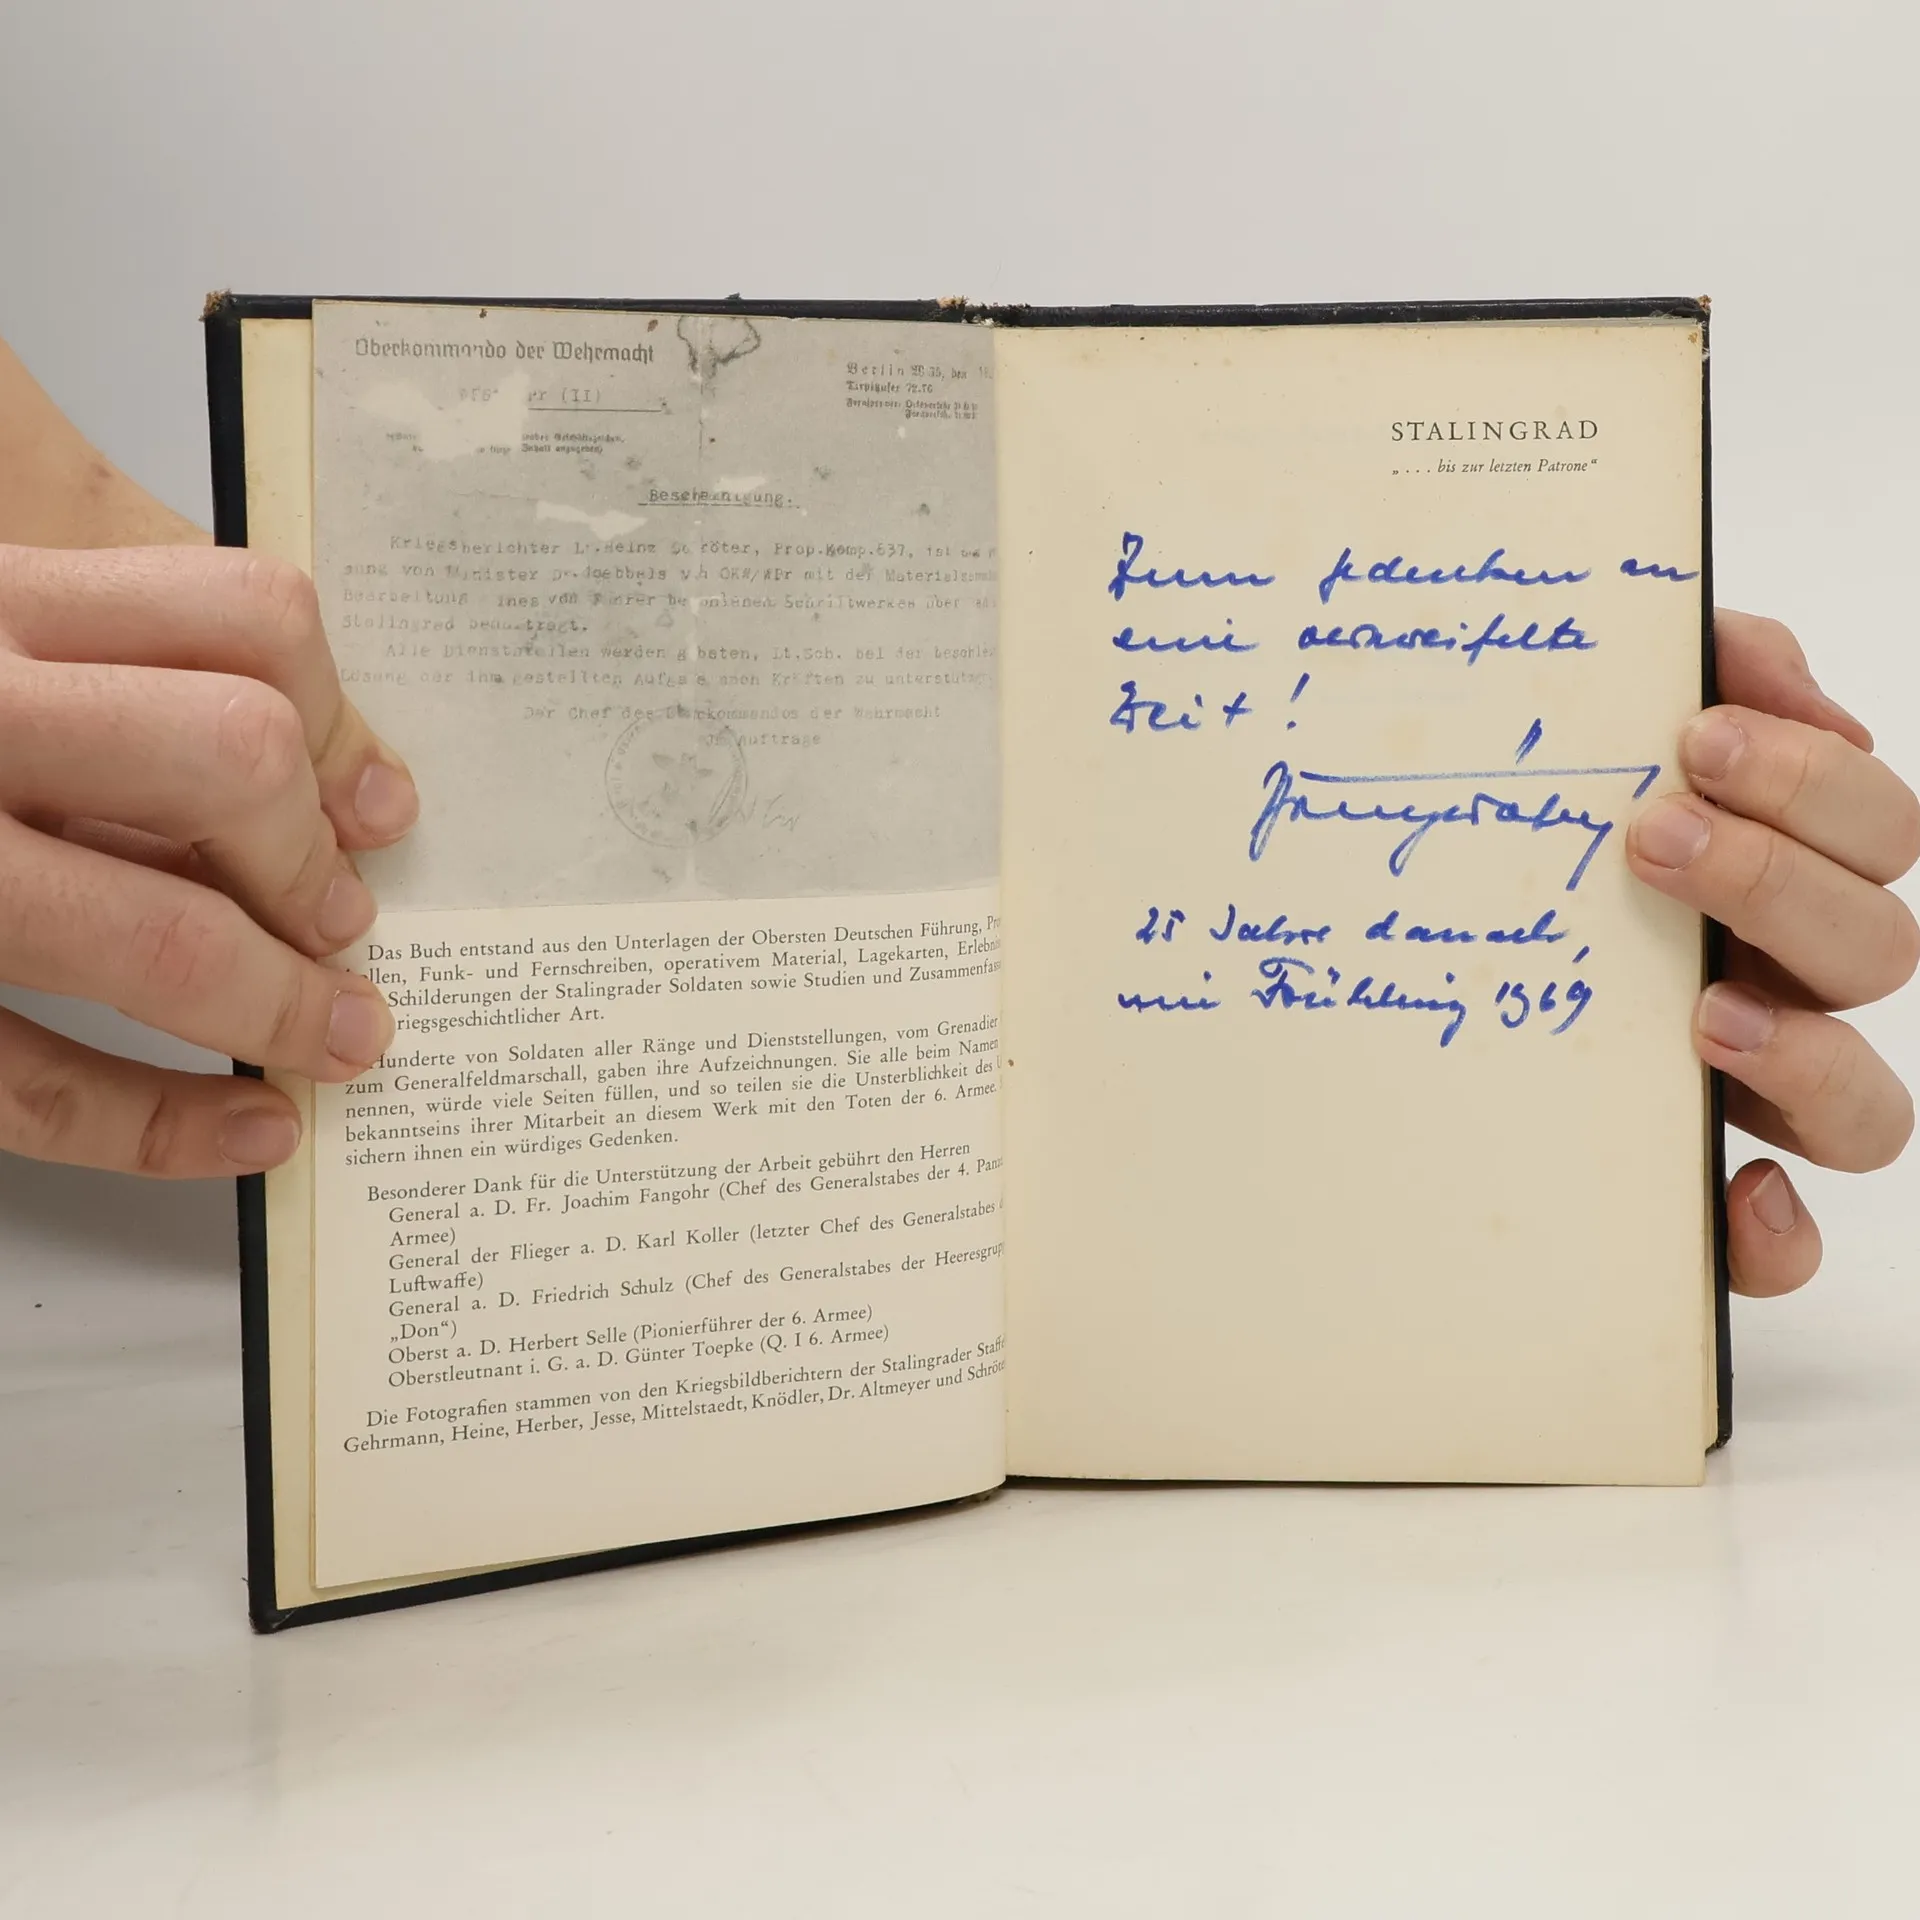 Oberkommando der Wehrmacht
(II)
Berlin W 35, den
Tirpitzufer 72-76
Bescheinigung.
Kriegsberichter Lt.Heinz Schröter, Prop.Komp.637, ist
von Minister Dr.Goebbels OKW/WPr mit der
Bearbeitung eines vom Führer befohlenen Schriftwerkes über
Stalingrad beauftragt.
Alle Dienststellen werden gebeten, Lt.Sch. bei der
Lösung der ihm gestellten Aufgabe nach Kräften zu
Der Chef des Oberkommandos der Wehrmacht
Im Auftrage
Das Buch entstand aus den Unterlagen der Obersten Deutschen Führung,
Funk- und Fernschreiben, operativem Material, Lagekarten,
Schilderungen der Stalingrader Soldaten sowie Studien und
riegsgeschichtlicher Art.
Hunderte von Soldaten aller Ränge und Dienststellungen, vom Grenadier
zum Generalfeldmarschall, gaben ihre Aufzeichnungen. Sie alle beim Namen
nennen, würde viele Seiten füllen, und so teilen sie die Unsterblichkeit des
bekanntseins ihrer Mitarbeit an diesem Werk mit den Toten der 6. Armee.
sichern ihnen ein würdiges Gedenken.
Besonderer Dank für die Unterstützung der Arbeit gebührt den Herren
General a. D. Fr. Joachim Fangohr (Chef des Generalstabes der 4.
Armee)
General der Flieger a. D. Karl Koller (letzter Chef des Generalstabes
Luftwaffe)
General a. D. Friedrich Schulz (Chef des Generalstabes der
„Don“)
Oberst a. D. Herbert Selle (Pionierführer der 6. Armee)
Oberstleutnant i. G. a. D. Günter Toepke (Q. I 6. Armee)
Die Fotografien stammen von den Kriegsbildberichtern der Stalingrader
Gehrmann, Heine, Herber, Jesse, Mittelstaedt, Knödler, Dr. Altmeyer und
STALINGRAD
„... bis zur letzten Patrone“
Zum Gedenken an
eine verzweifelte
Zeit!
25 Jahre danach,
im Frühling 1969